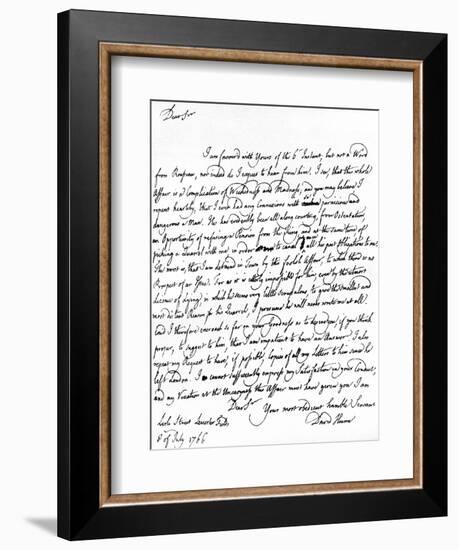 Dear Sir
I am favored with Yours of the 6th Instant, but not a Word
from Rousseau, nor indeed do I expect to hear from him. I see, that this whole
Affair is a Complication of Wickedness and Madness; and you may believe I
repent heartily, that I ever had any Connexions with so pernicious and
dangerous a Man. He has evidently been all along courting, from Ostentation,
an Opportunity of refusing a Pension from the King, and at the same time of
picking a Quarrel with me, in order to cancel all his past Obligations to me.
The worst is, that I am detained in Town by this foolish Affair,
Prospect of an End. For as it is utterly impossible for him, even by the utmost
Licence of Lying, in which he seems very little scrupulous, to give the smallest and
most distant Reason for his Quarrel, I presume he will never write me at all.
And I therefore encroach so far on your Goodness as to desire you, if you think
proper, to suggest to him, that I am impatient to have an Answer. I also
repeat my Request to have, if possible, Copies of all my Letters to him since he
left London. I cannot sufficiently express my Satisfaction in your Conduct,
and my Vexation at the this Affair must have given you I am
Dear Sir Your most obedient humble Servant
Lisle Street Leicester Fields David Hume
8 of July 1766